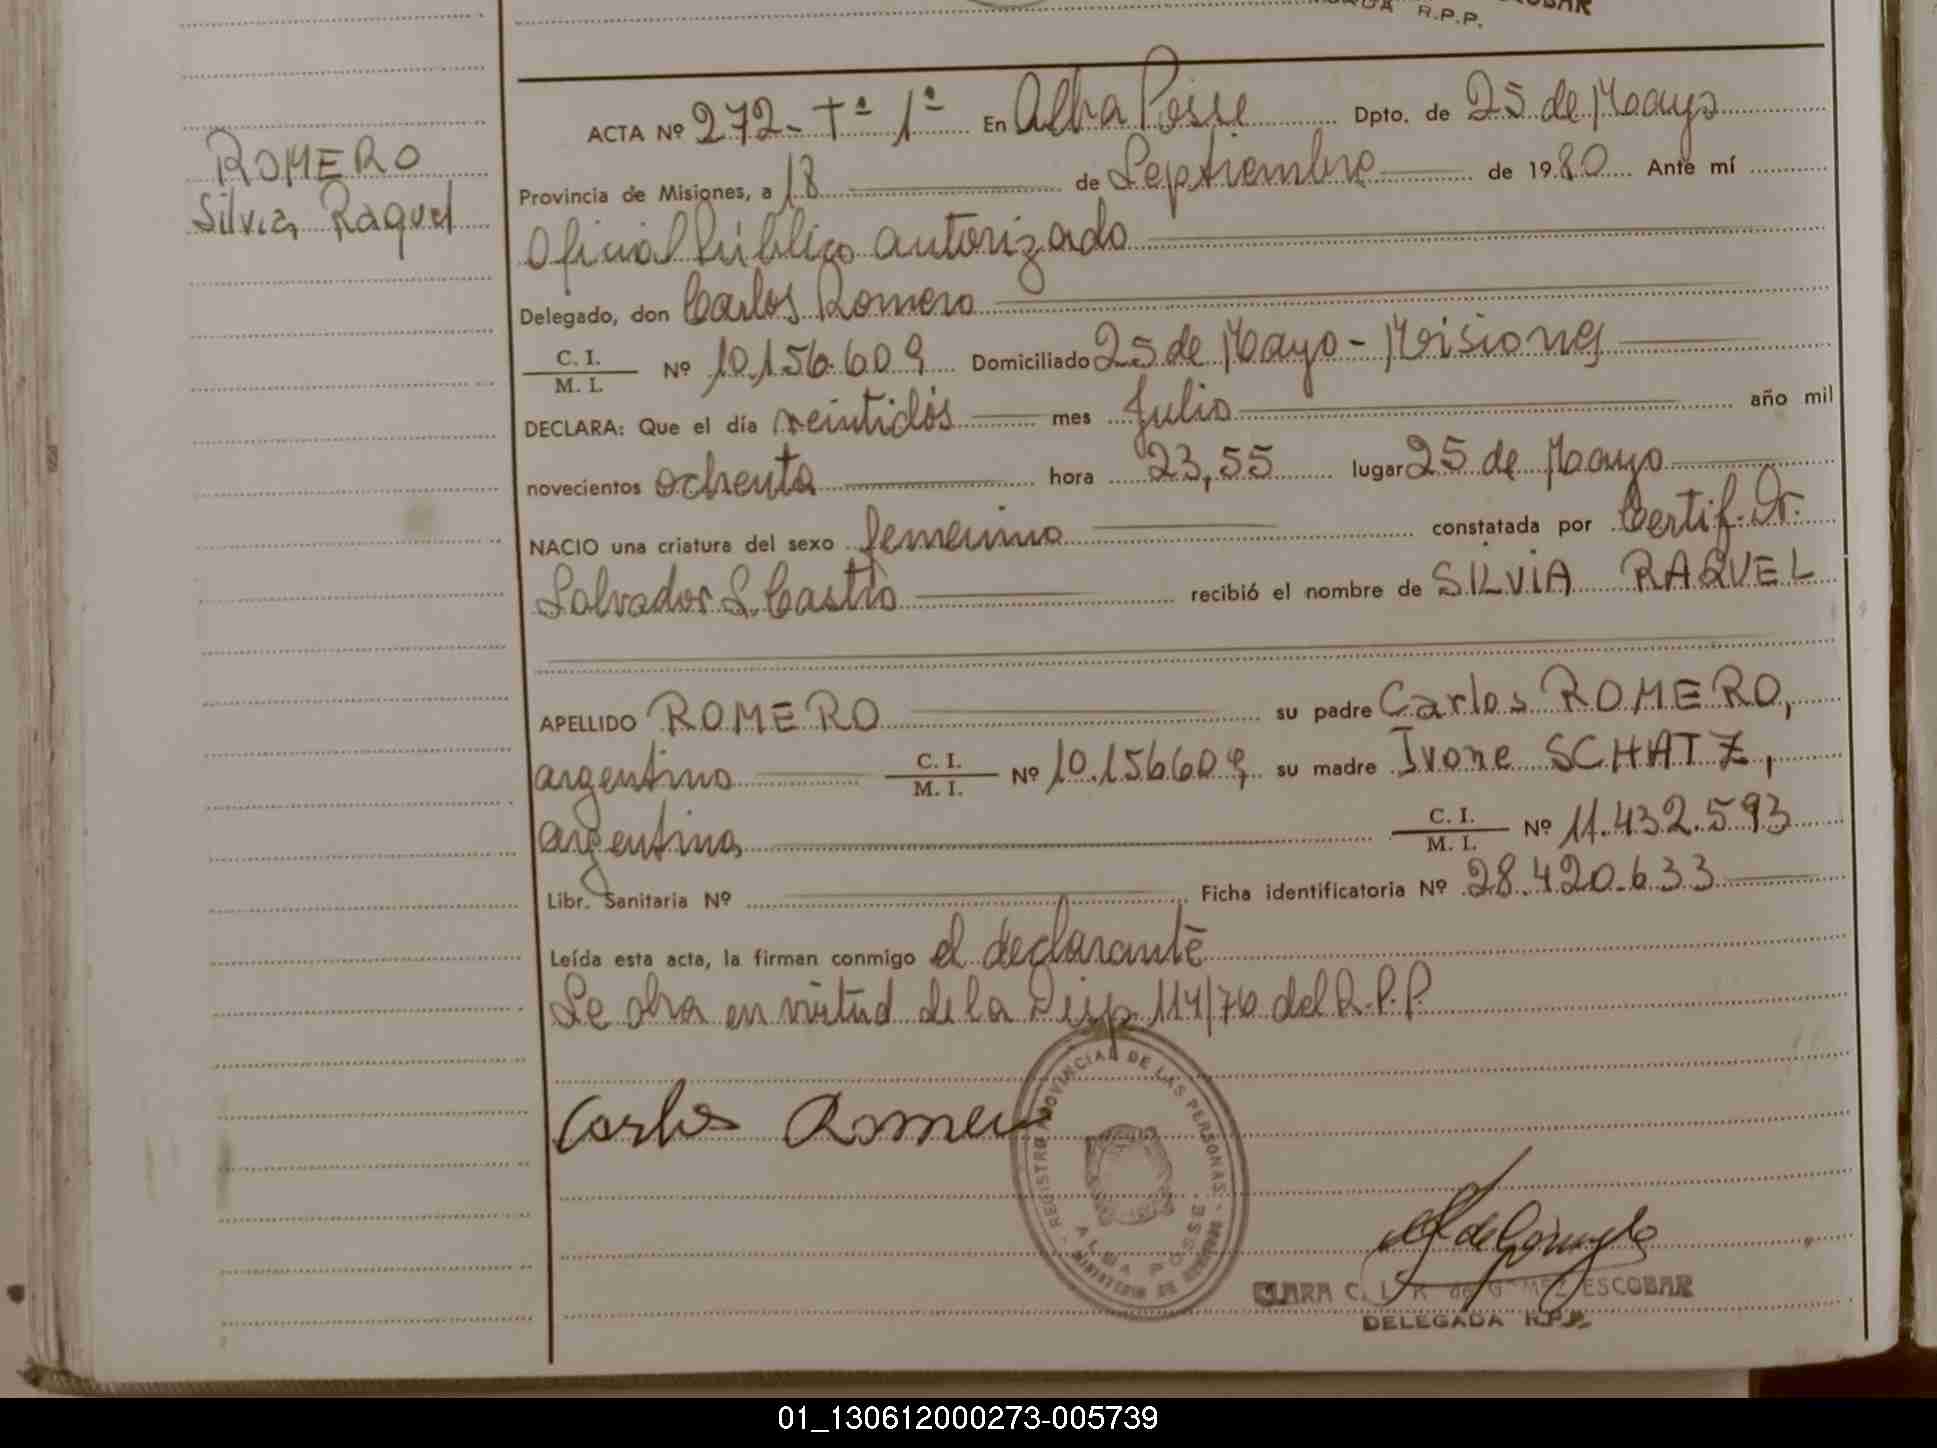 ESCOBAR
R.P.P.
ROMERO
Silvia, Raquel
ACTA Nº 272- Tº 1º En Alba Posse Dpto. de 25 de Mayo
Provincia de Misiones, a 18 de Septiembre de 1980 Ante mí
Oficial Público autorizado
Delegado, don Carlos Romero
C. I.
M. I. Nº 10.156.609 Domiciliado 25 de Mayo - Misiones
DECLARA: Que el día veintidós mes Julio año mil
novecientos ochenta hora 23,55 lugar 25 de Mayo
NACIO una criatura del sexo femenino constatada por Certif. Dr.
Salvador S. Castro recibió el nombre de SILVIA RAQUEL
APELLIDO ROMERO su padre Carlos ROMERO,
argentino C. I.
M. I. Nº 10.156609, su madre Ivone SCHATZ,
argentina, C. I.
M. I. Nº 11.432.593
Libr. Sanitaria Nº Ficha identificatoria Nº 28.420.633
Leída esta acta, la firman conmigo el declarante
Se obra en virtud de la Disp 114/76 del R.P.P.
Carlos Romero
REGISTRO PROVINCIAL DE LAS PERSONAS - MINISTERIO DE
ALBA POSSE
CLARA C. L. R. de GOMEZ ESCOBAR
DELEGADA R.P.P.
01_130612000273-005739